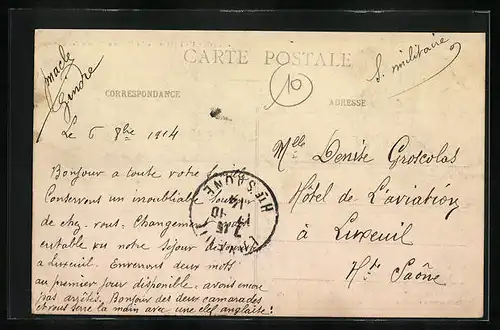 CARTE POSTALE
CORRESPONDANCE
ADRESSE
S. militaire
10
Gindre
Le 6 8bre 1914
Bonjour a toute votre
Conservons un inoubliable souvenir
de chez vous. Changement
vu notre séjour
a Luxeuil. Enverrons deux mots
au premier jour disponible, avons encore
pas arrêtés. Bonjour des deux camarades
et vous serre la main avec une clef anglaise!
Hte SAÔNE
Melle Denise Groscolas
Hôtel de L'aviation
à Luxeuil
Hte Saône